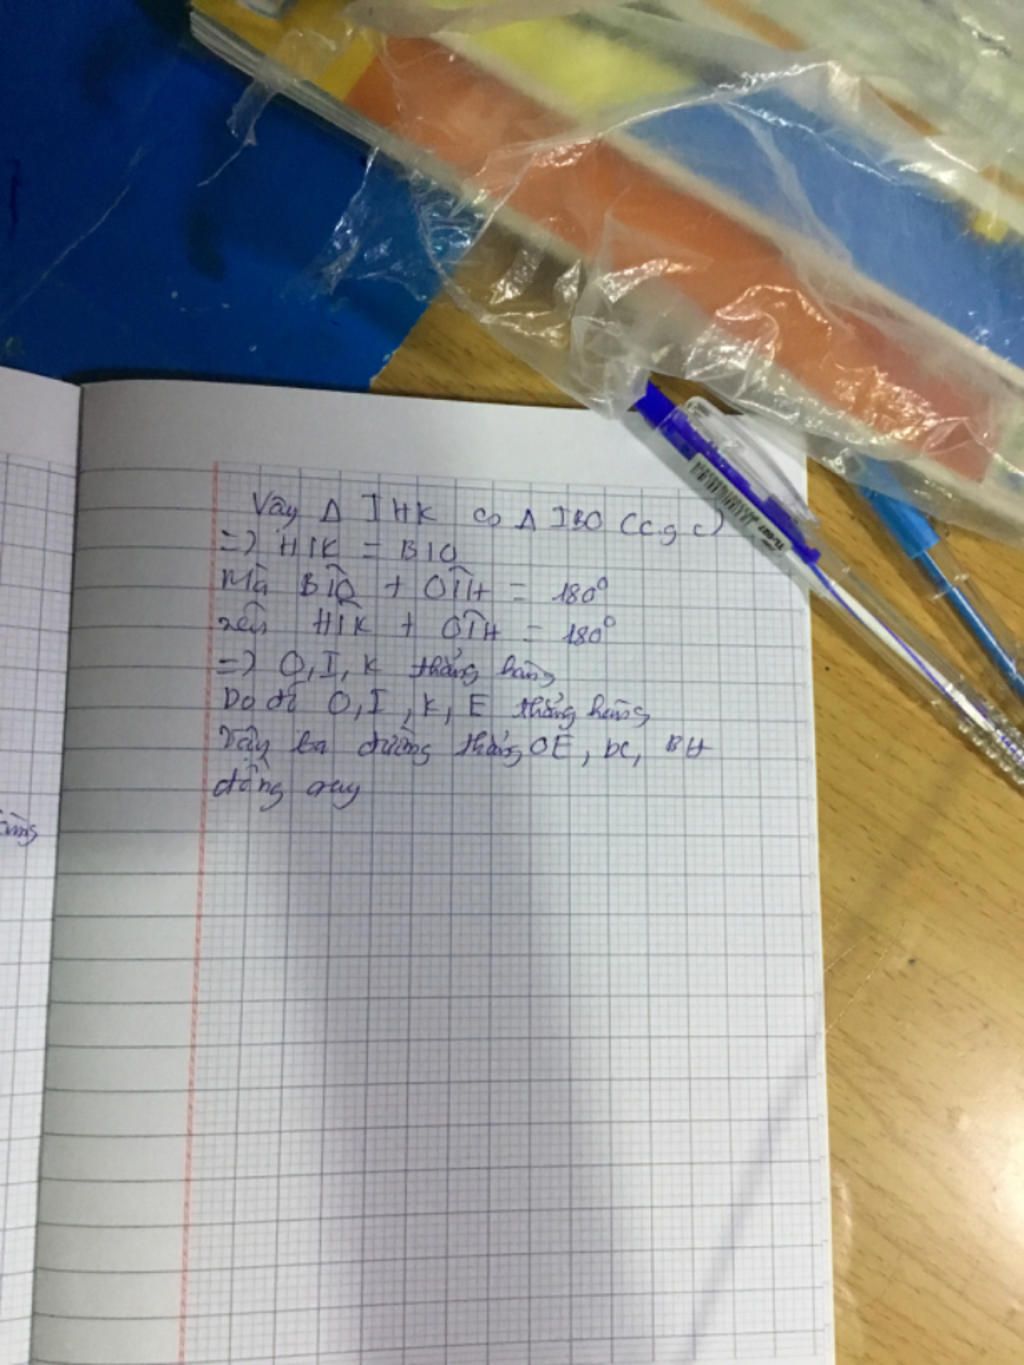 Vậy Δ IHK ∽ Δ IBO (c.g.c)
=> HIK = BIO
Mà BÎO + OÎH = 180⁰
nên HÎK + OÎH = 180⁰
=> O, I, K thẳng hàng
Do đó O, I, K, E thẳng hàng
Vậy ba đường thẳng OE, DC, BH
đồng quy